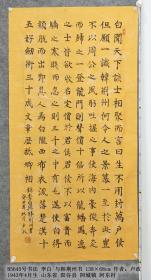 白聞天下談士相聚而言曰生不用封萬戶侯
但願一識韓荊州何令人之景慕一至於此豈
不以周公之風躬吐握之事使海內豪俊奔走
而歸之一登龍門則聲價十倍所以龍蟠鳳逸
之士皆欲收名定價於君侯君侯不以富貴而
驕之寒賤而忽之則三千之中有毛遂使白得
穎脫而出即其人焉白隴西布衣流落楚漢十
五好劍術三十成文章歷抵卿相
B5645号书法 李白 与韩荆州书 138×68cm 作者：卢政
1943年4月生 山东省 阳谷县 阿城镇 阿东村